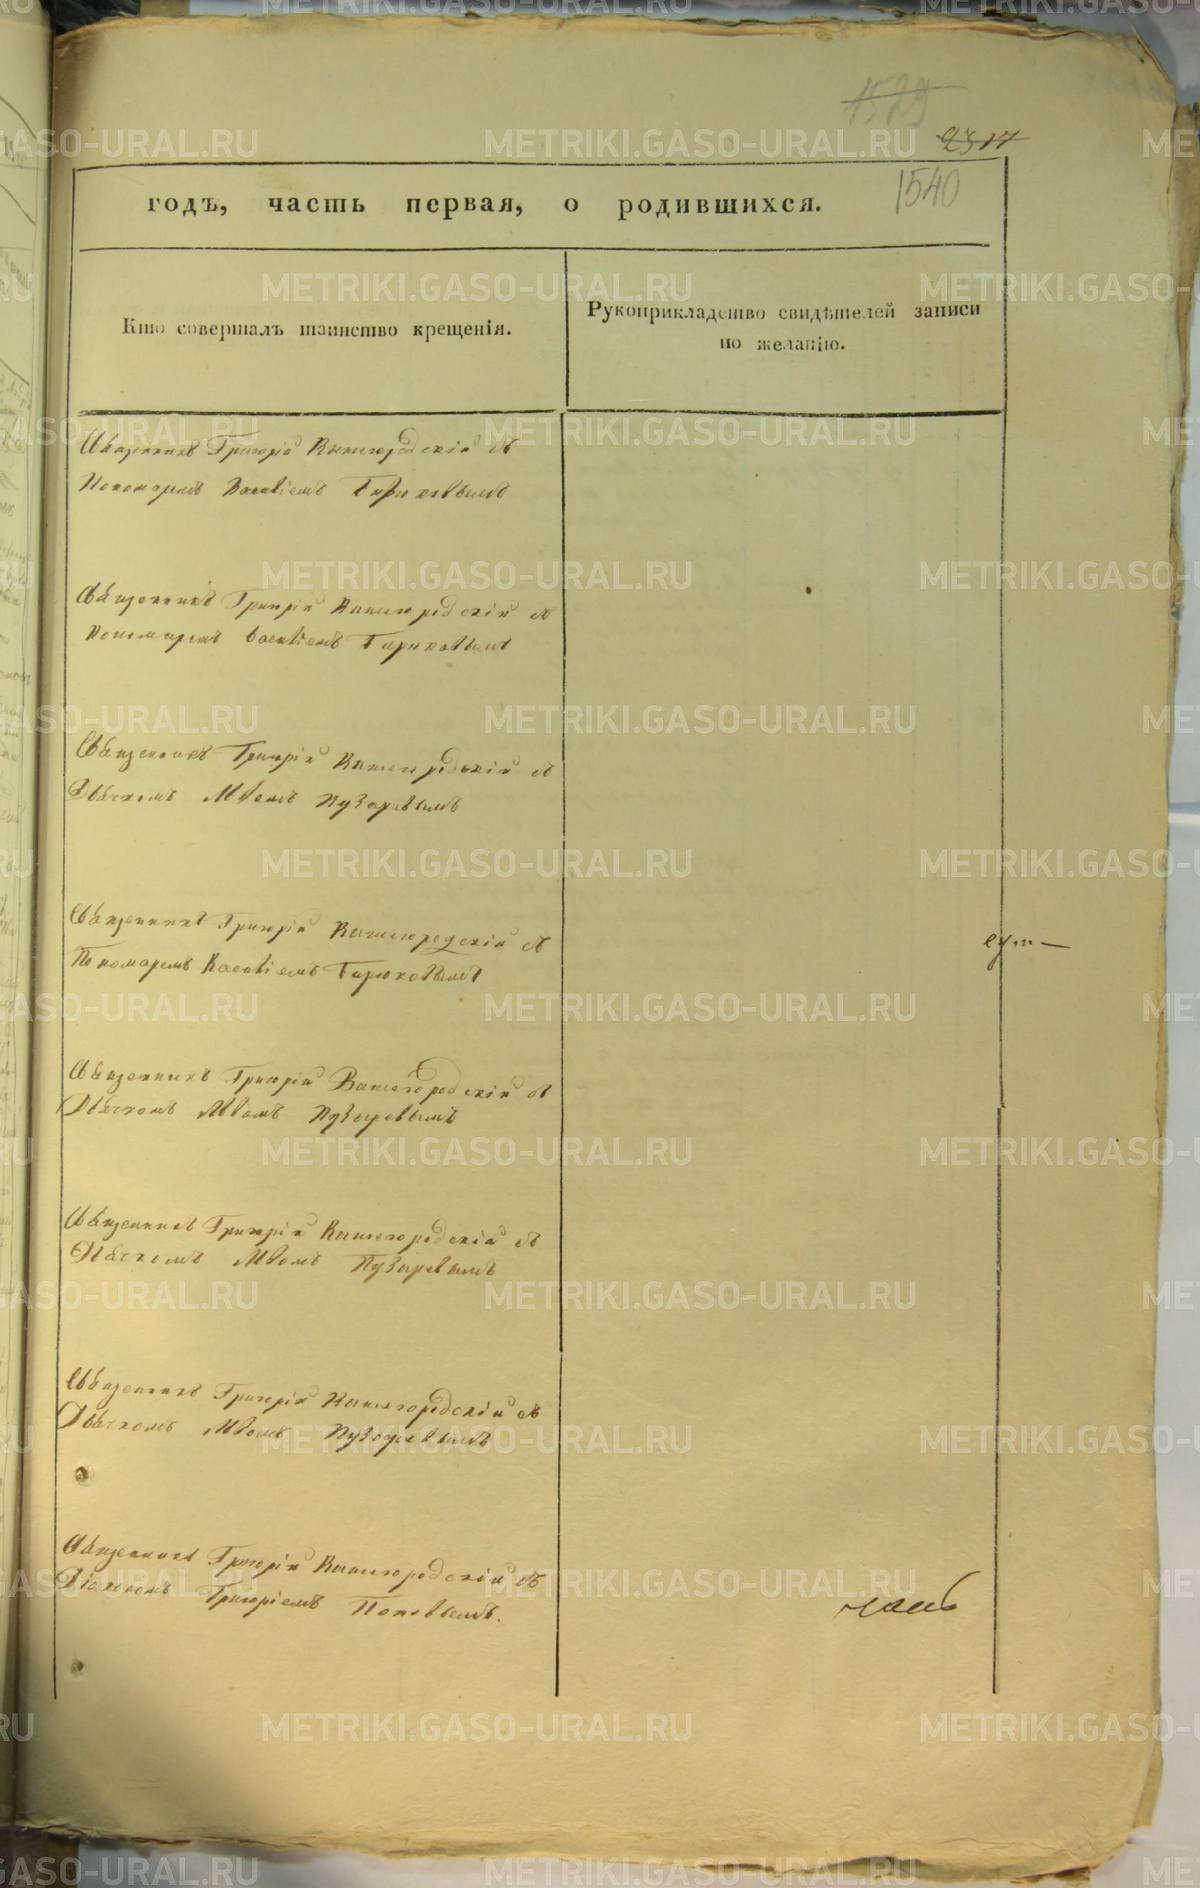 1529
2317
1540
годъ, часть первая, о родившихся.
Кто совершалъ таинство крещенія.
Рукоприкладство свидѣтелей записи
по желанію.
Священникъ Григорій Вышегородскій съ
Пономаремъ Василіемъ
Священникъ Григорій Вышегородскій съ
Пономаремъ Василіемъ
Священникъ Григорій Вышегородскій съ
Дьячкомъ Пузыревымъ
Священникъ Григорій Вышегородскій съ
Пономаремъ Василіемъ
Священникъ Григорій Вышегородскій съ
Дьячкомъ Пузыревымъ
Священникъ Григорій Вышегородскій съ
Дьячкомъ Пузыревымъ
Священникъ Григорій Вышегородскій съ
Дьячкомъ Пузыревымъ
Священникъ Григорій Вышегородскій съ
Діакономъ Григоріемъ Поповымъ.
METRIKI.GASO-URAL.RU